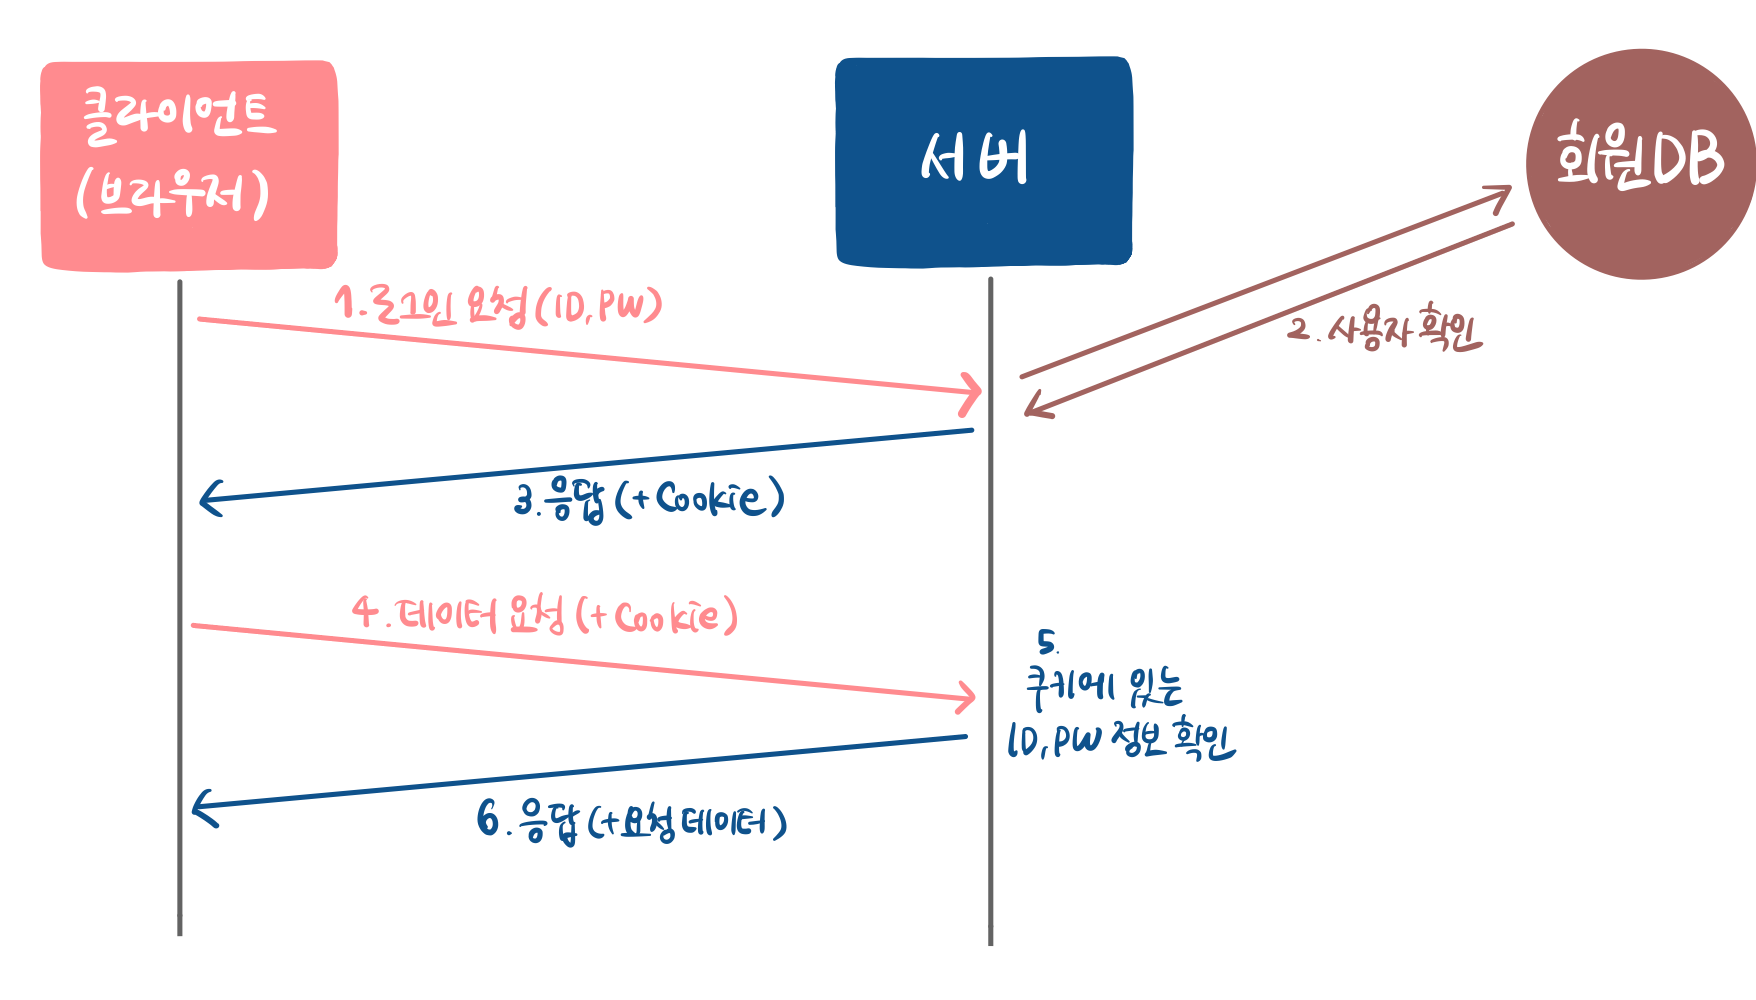 클라이언트
(브라우저)
서버
회원DB
1.로그인 요청(ID, PW)
2. 사용자 확인
3. 응답 (+ Cookie)
4. 데이터 요청 (+ Cookie)
5.
쿠키에 있는
ID, PW 정보 확인
6. 응답 (+요청 데이터)